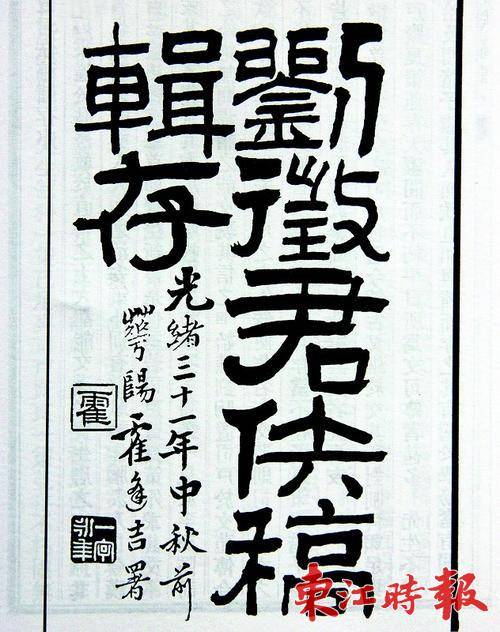 劉徵君佚稿
輯存
光緒三十一年中秋前
華陽霍逢吉署
霍
東江時報